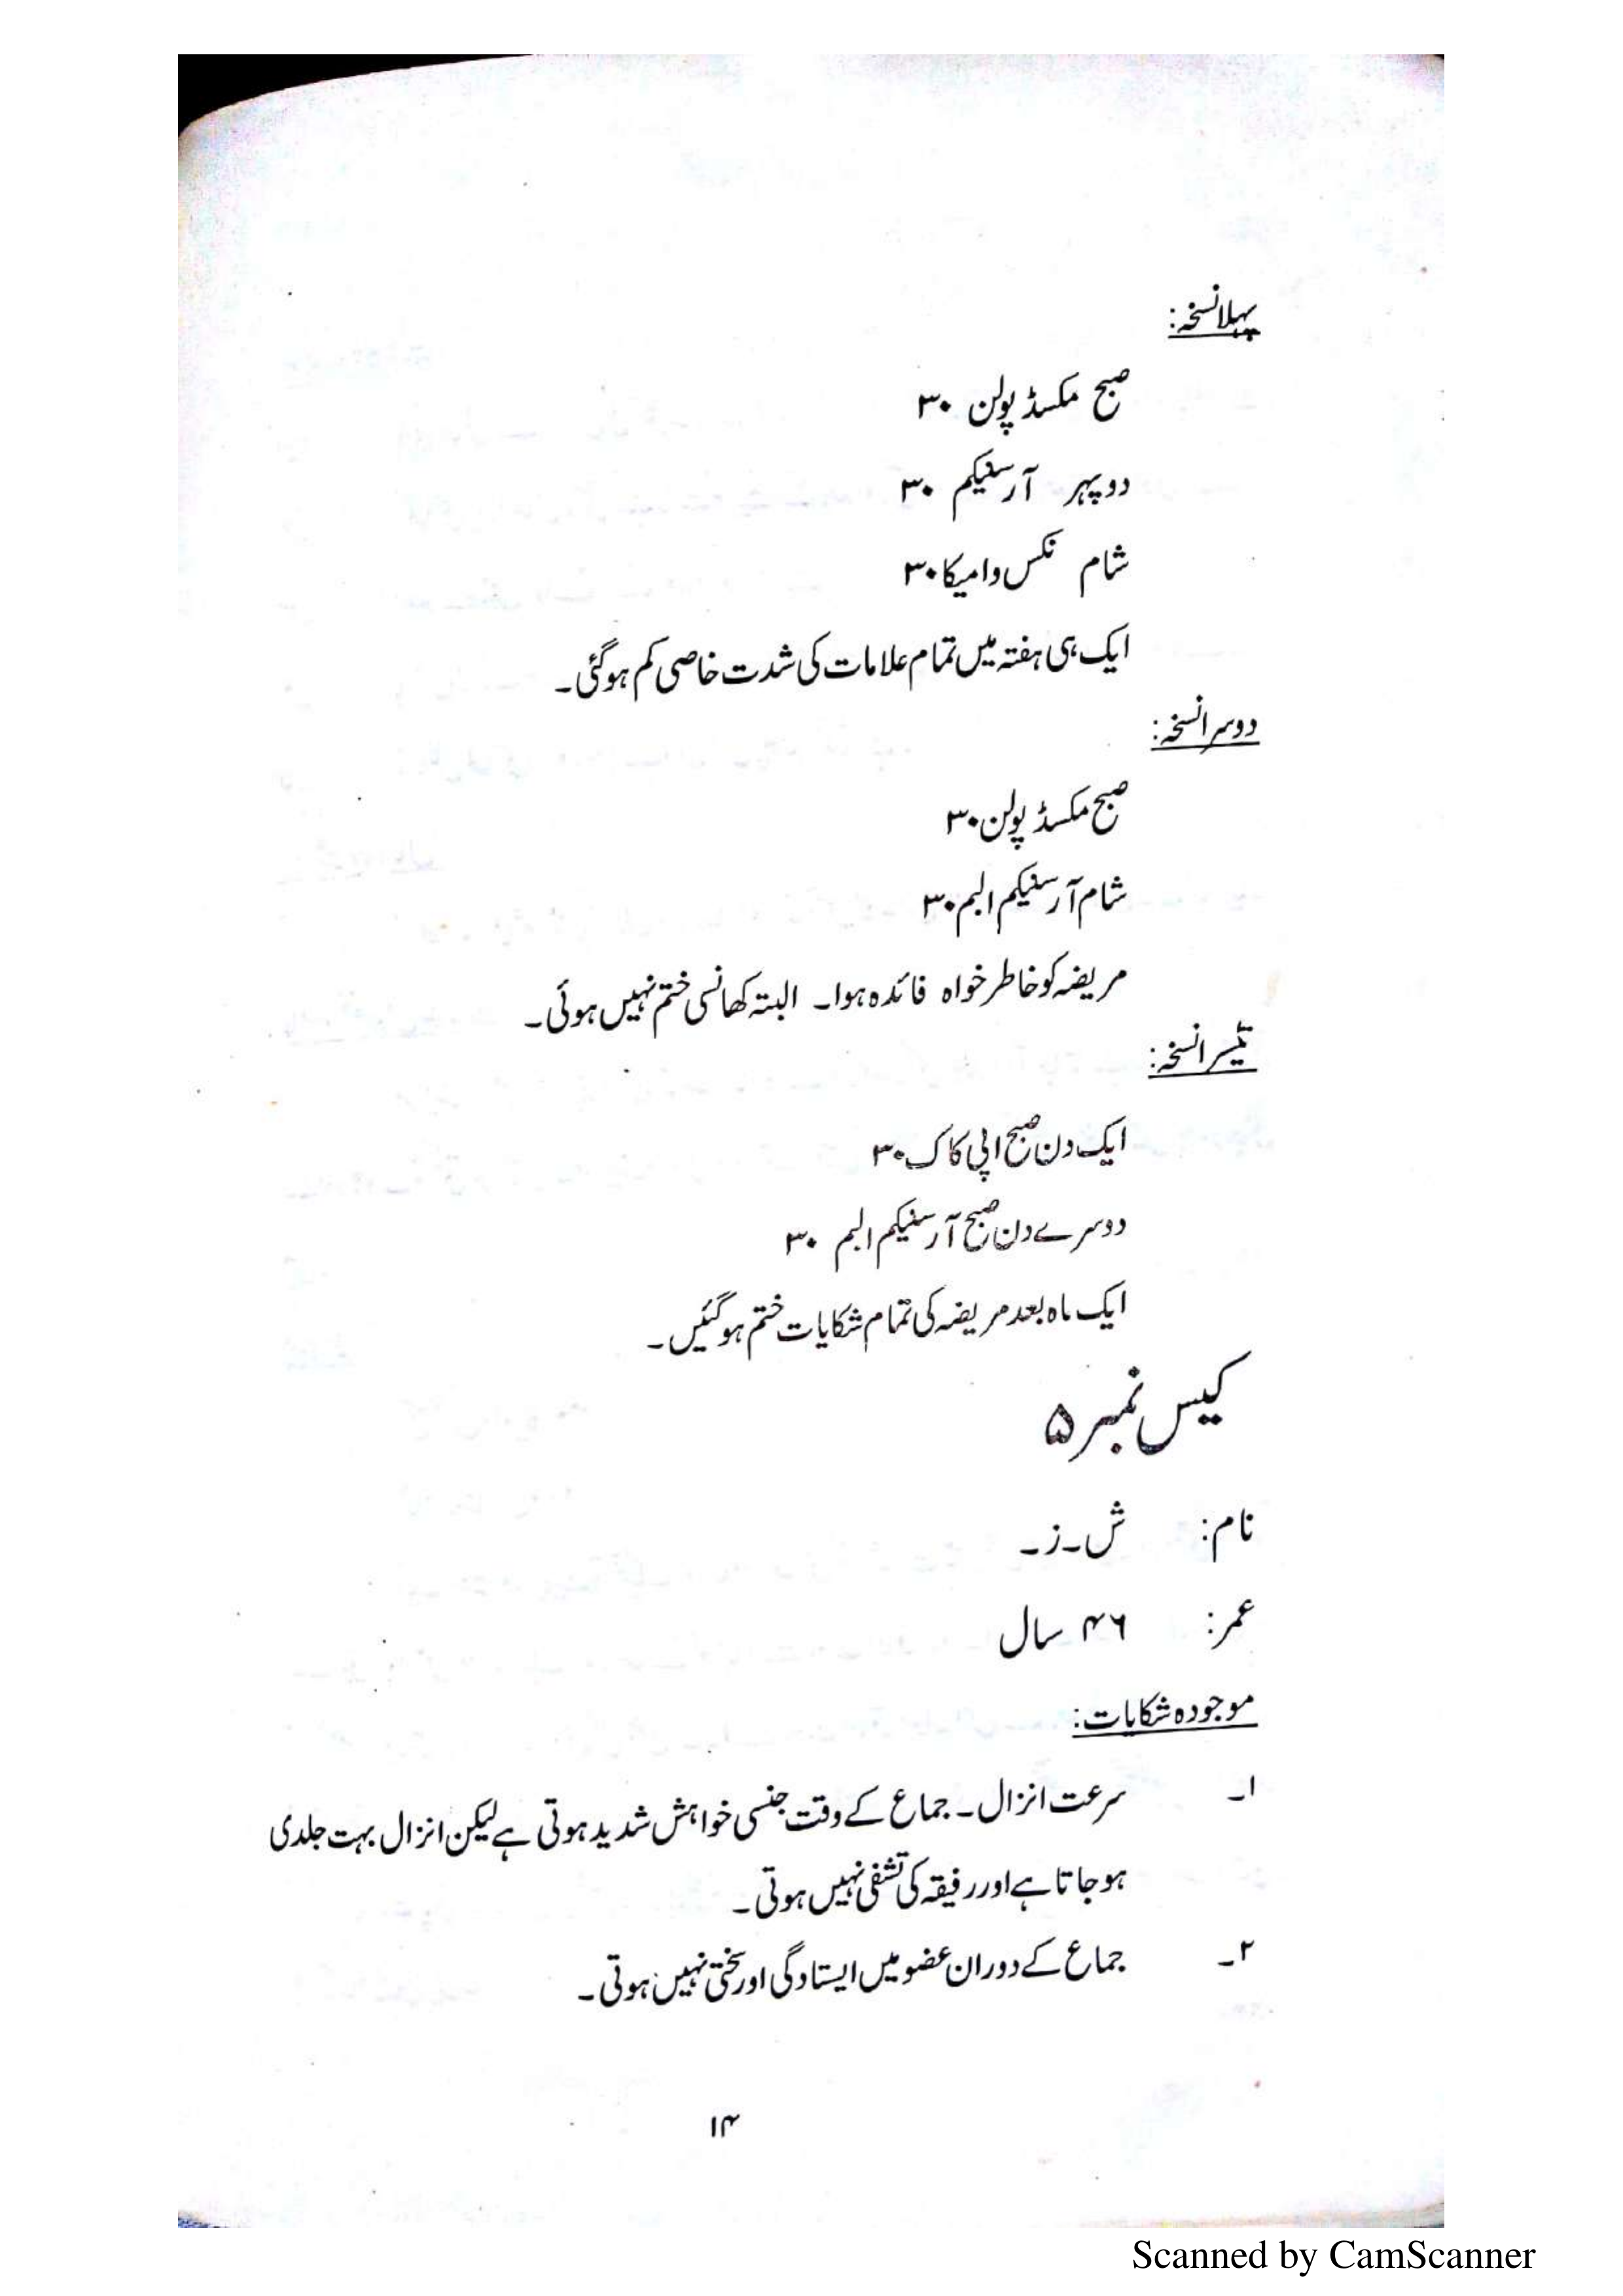 پہلا نسخہ:
صبح مکسڈ پولن ۳۰
دوپہر آرسنیکم ۳۰
شام نکس وامیکا ۳۰
ایک ہی ہفتہ میں تمام علامات کی شدت خاصی کم ہو گئی۔
دوسرا نسخہ:
صبح مکسڈ پولن ۳۰
شام آرسنیکم البم ۳۰
مریضہ کو خاطر خواہ فائدہ ہوا۔ البتہ کھانسی ختم نہیں ہوئی۔
تیسرا نسخہ:
ایک دن صبح اپی کاک ۳۰
دوسرے دن صبح آرسنیکم البم ۳۰
ایک ماہ بعد مریضہ کی تمام شکایات ختم ہو گئیں۔
کیس نمبر ۵
نام: ش۔ز۔
عمر: ۴۶ سال
موجودہ شکایات:
۱۔ سرعت انزال۔ جماع کے وقت جنسی خواہش شدید ہوتی ہے لیکن انزال بہت جلدی
ہو جاتا ہے اور رفیقہ کی تشفی نہیں ہوتی۔
۲۔ جماع کے دوران عضو میں ایستادگی اور سختی نہیں ہوتی۔
۱۴
Scanned by CamScanner